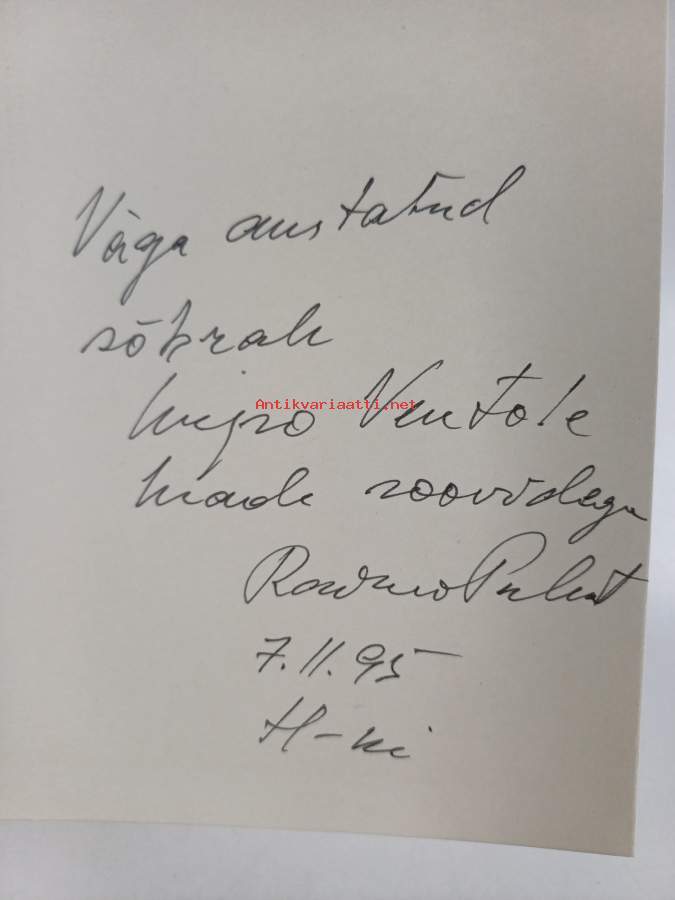 Väga austatud
sõbrale
Antikvariaatti.net
Ventole
heade soovidega
Raimo Pullat
7.II.95
H-ki